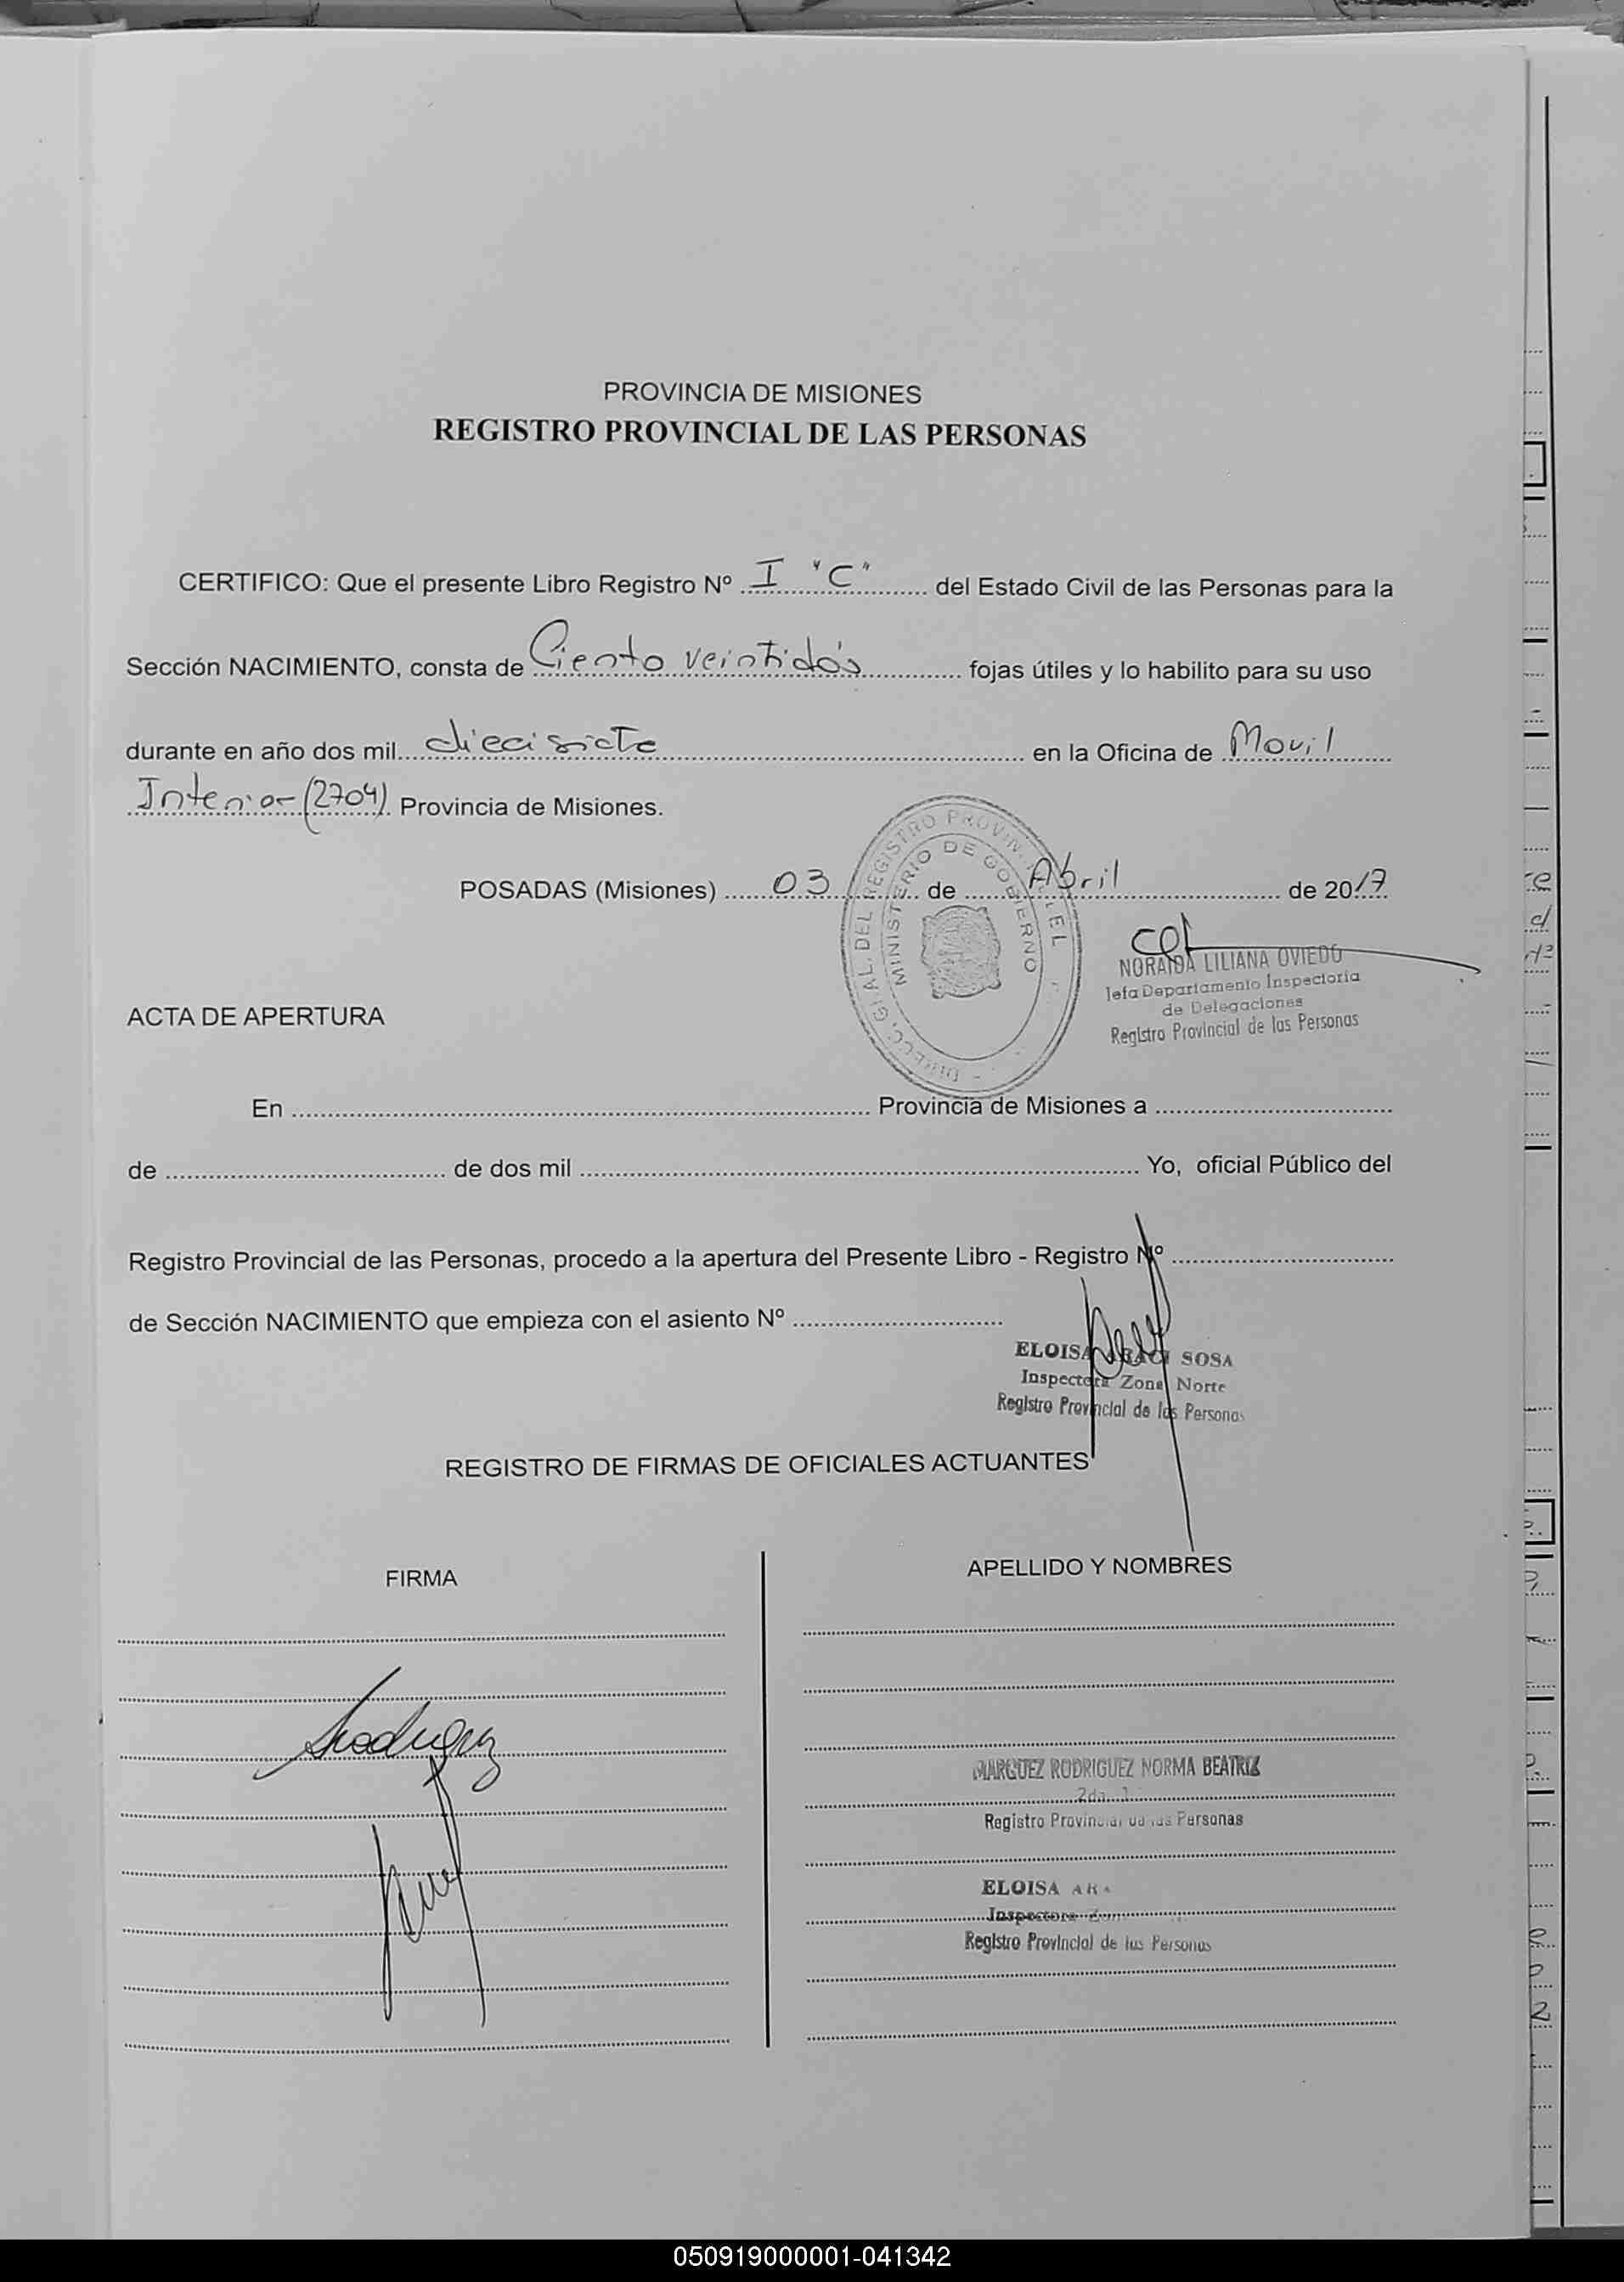 PROVINCIA DE MISIONES
REGISTRO PROVINCIAL DE LAS PERSONAS
CERTIFICO: Que el presente Libro Registro Nº I "C" del Estado Civil de las Personas para la
Sección NACIMIENTO, consta de Ciento veintidós fojas útiles y lo habilito para su uso
durante en año dos mil diecisiete en la Oficina de Movil
Interior (2704) Provincia de Misiones.
POSADAS (Misiones) 03 de Abril de 2017
MINISTERIO DE GOBIERNO
NORAIDA LILIANA OVIEDO
Jefa Departamento Inspectoria
de Delegaciones
Registro Provincial de las Personas
ACTA DE APERTURA
En Provincia de Misiones a
de de dos mil Yo, oficial Público del
Registro Provincial de las Personas, procedo a la apertura del Presente Libro - Registro Nº
de Sección NACIMIENTO que empieza con el asiento Nº
ELOISA ARACI SOSA
Inspectora Zona Norte
Registro Provincial de las Personas
REGISTRO DE FIRMAS DE OFICIALES ACTUANTES
FIRMA APELLIDO Y NOMBRES
MARQUEZ RODRIGUEZ NORMA BEATRIZ
Registro Provincial de las Personas
ELOISA ARA
Inspectora Zon
Registro Provincial de las Personas
050919000001-041342